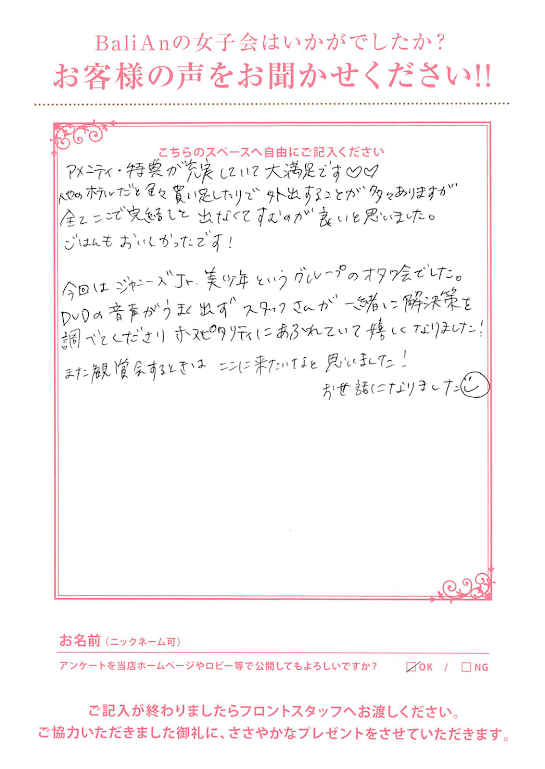 BaliAnの女子会はいかがでしたか?
お客様の声をお聞かせください!!
こちらのスペースへ自由にご記入ください
アメニティ・特典が充実していて大満足です♡♡
他のホテルだと色々買い足したりで外出することが多々ありますが
全てここで完結して出なくてすむのが良いと思いました。
ごはんもおいしかったです!
今回はジャニーズJr.美少年というグループのオタク会でした。
DVDの音声がうまく出ずスタッフさんが一緒に解決策を
調べてくださりホスピタリティにあふれていて嬉しくなりました!
また観賞会するときはここに来たいなと思いました!
お世話になりました☺
お名前(ニックネーム可)
アンケートを当店ホームページやロビー等で公開してもよろしいですか? ☑OK / □NG
ご記入が終わりましたらフロントスタッフへお渡しください。
ご協力いただきました御礼に、ささやかなプレゼントをさせていただきます。